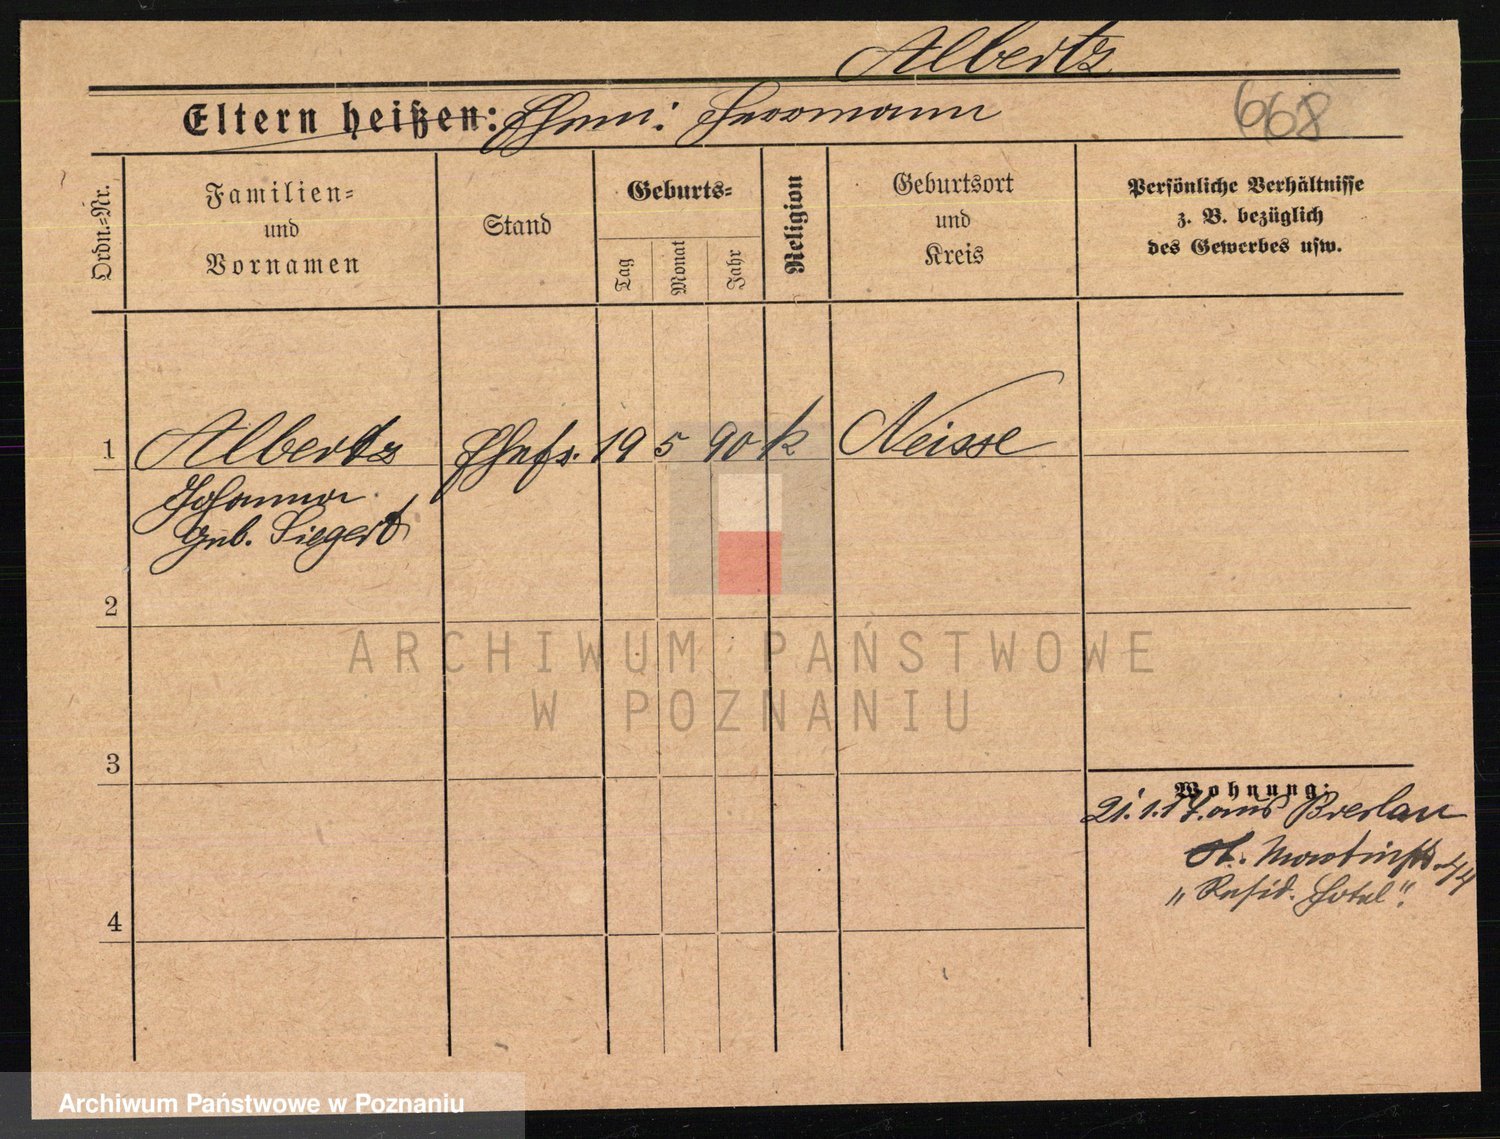 Albertz
Eltern heißen: Ehem: Herrmann
668
Ordn.=Nr.
Familien=
und
Vornamen
Stand
Geburts=
Tag
Monat
Jahr
Religion
Geburtsort
und
Kreis
Persönliche Verhältnisse
z. B. bezüglich
des Gewerbes usw.
1
Albertz
Johanna
geb. Siegert
Ehefr.
19
5
90
k
Neisse
2
ARCHIWUM PAŃSTWOWE
W POZNANIU
3
Wohnung:
21.1.17. aus Breslau
St. Martinstr. 44
„Resid. Hotel".
4
Archiwum Państwowe w Poznaniu